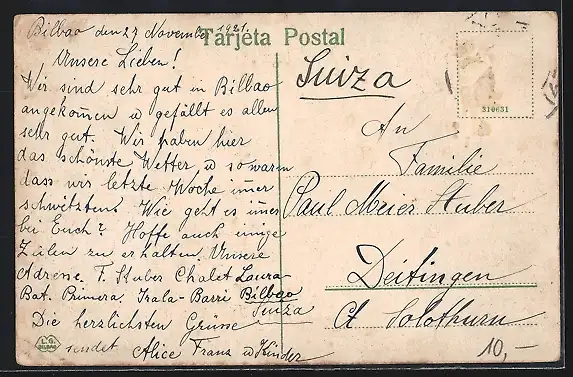 Tarjeta Postal
Bilbao den 27 November 1921.
Unsere Lieben!
Wir sind sehr gut in Bilbao
angekommen u gefällt es allen
sehr gut. Wir haben hier
das schönste Wetter, u so warm
dass wir letzte Woche imer
schwitzten. Wie geht es imer
bei Euch? Hoffe auch einige
Zeilen zu erhalten. Unsere
Adresse. F. Stuber Chalet Laura
Bat. Primera. Irala-Barri Bilbao
Die herzlichsten Grüsse
sendet Alice Franz u Kinder
Suiza
310631
An
Familie
Paul Meier Stuber
Deitingen
Ct Solothurn
10,-
L.G.
BILBAO